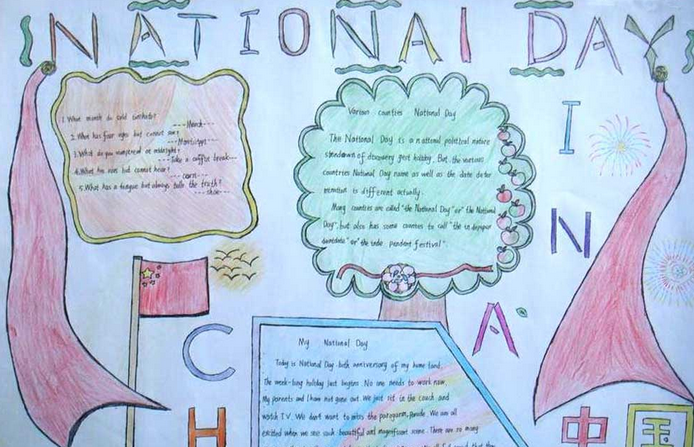 NATIONAL DAY
1. What month do cold
---March---
2. What has four eyes but cannot see?
---Mississippi---
3. What do you
---Take a coffee break---
4. What has ears but cannot hear?
---corn---
5. What has a tongue but always talk the truth?
---shoe---
Various counties National Day
The National Day is a national political nature
of discovery gest holiday. But the various
countries National Day name as well as the date deter
mination is different actually.
Many counties are called "the National Day" or "the National
Day", but also has some counties to call "the in depepar
" or "the inde pendent festival".
CHINA
My National Day
Today is National Day both anniversary of my home land.
The week-long holiday just begins. No one needs to work now.
My parents and I have not gone out. We just sit in the couch and
watch T.V. We don't want to miss the parade. We are all
excited when we see such beautiful and magnificent scene. There are so many
中国